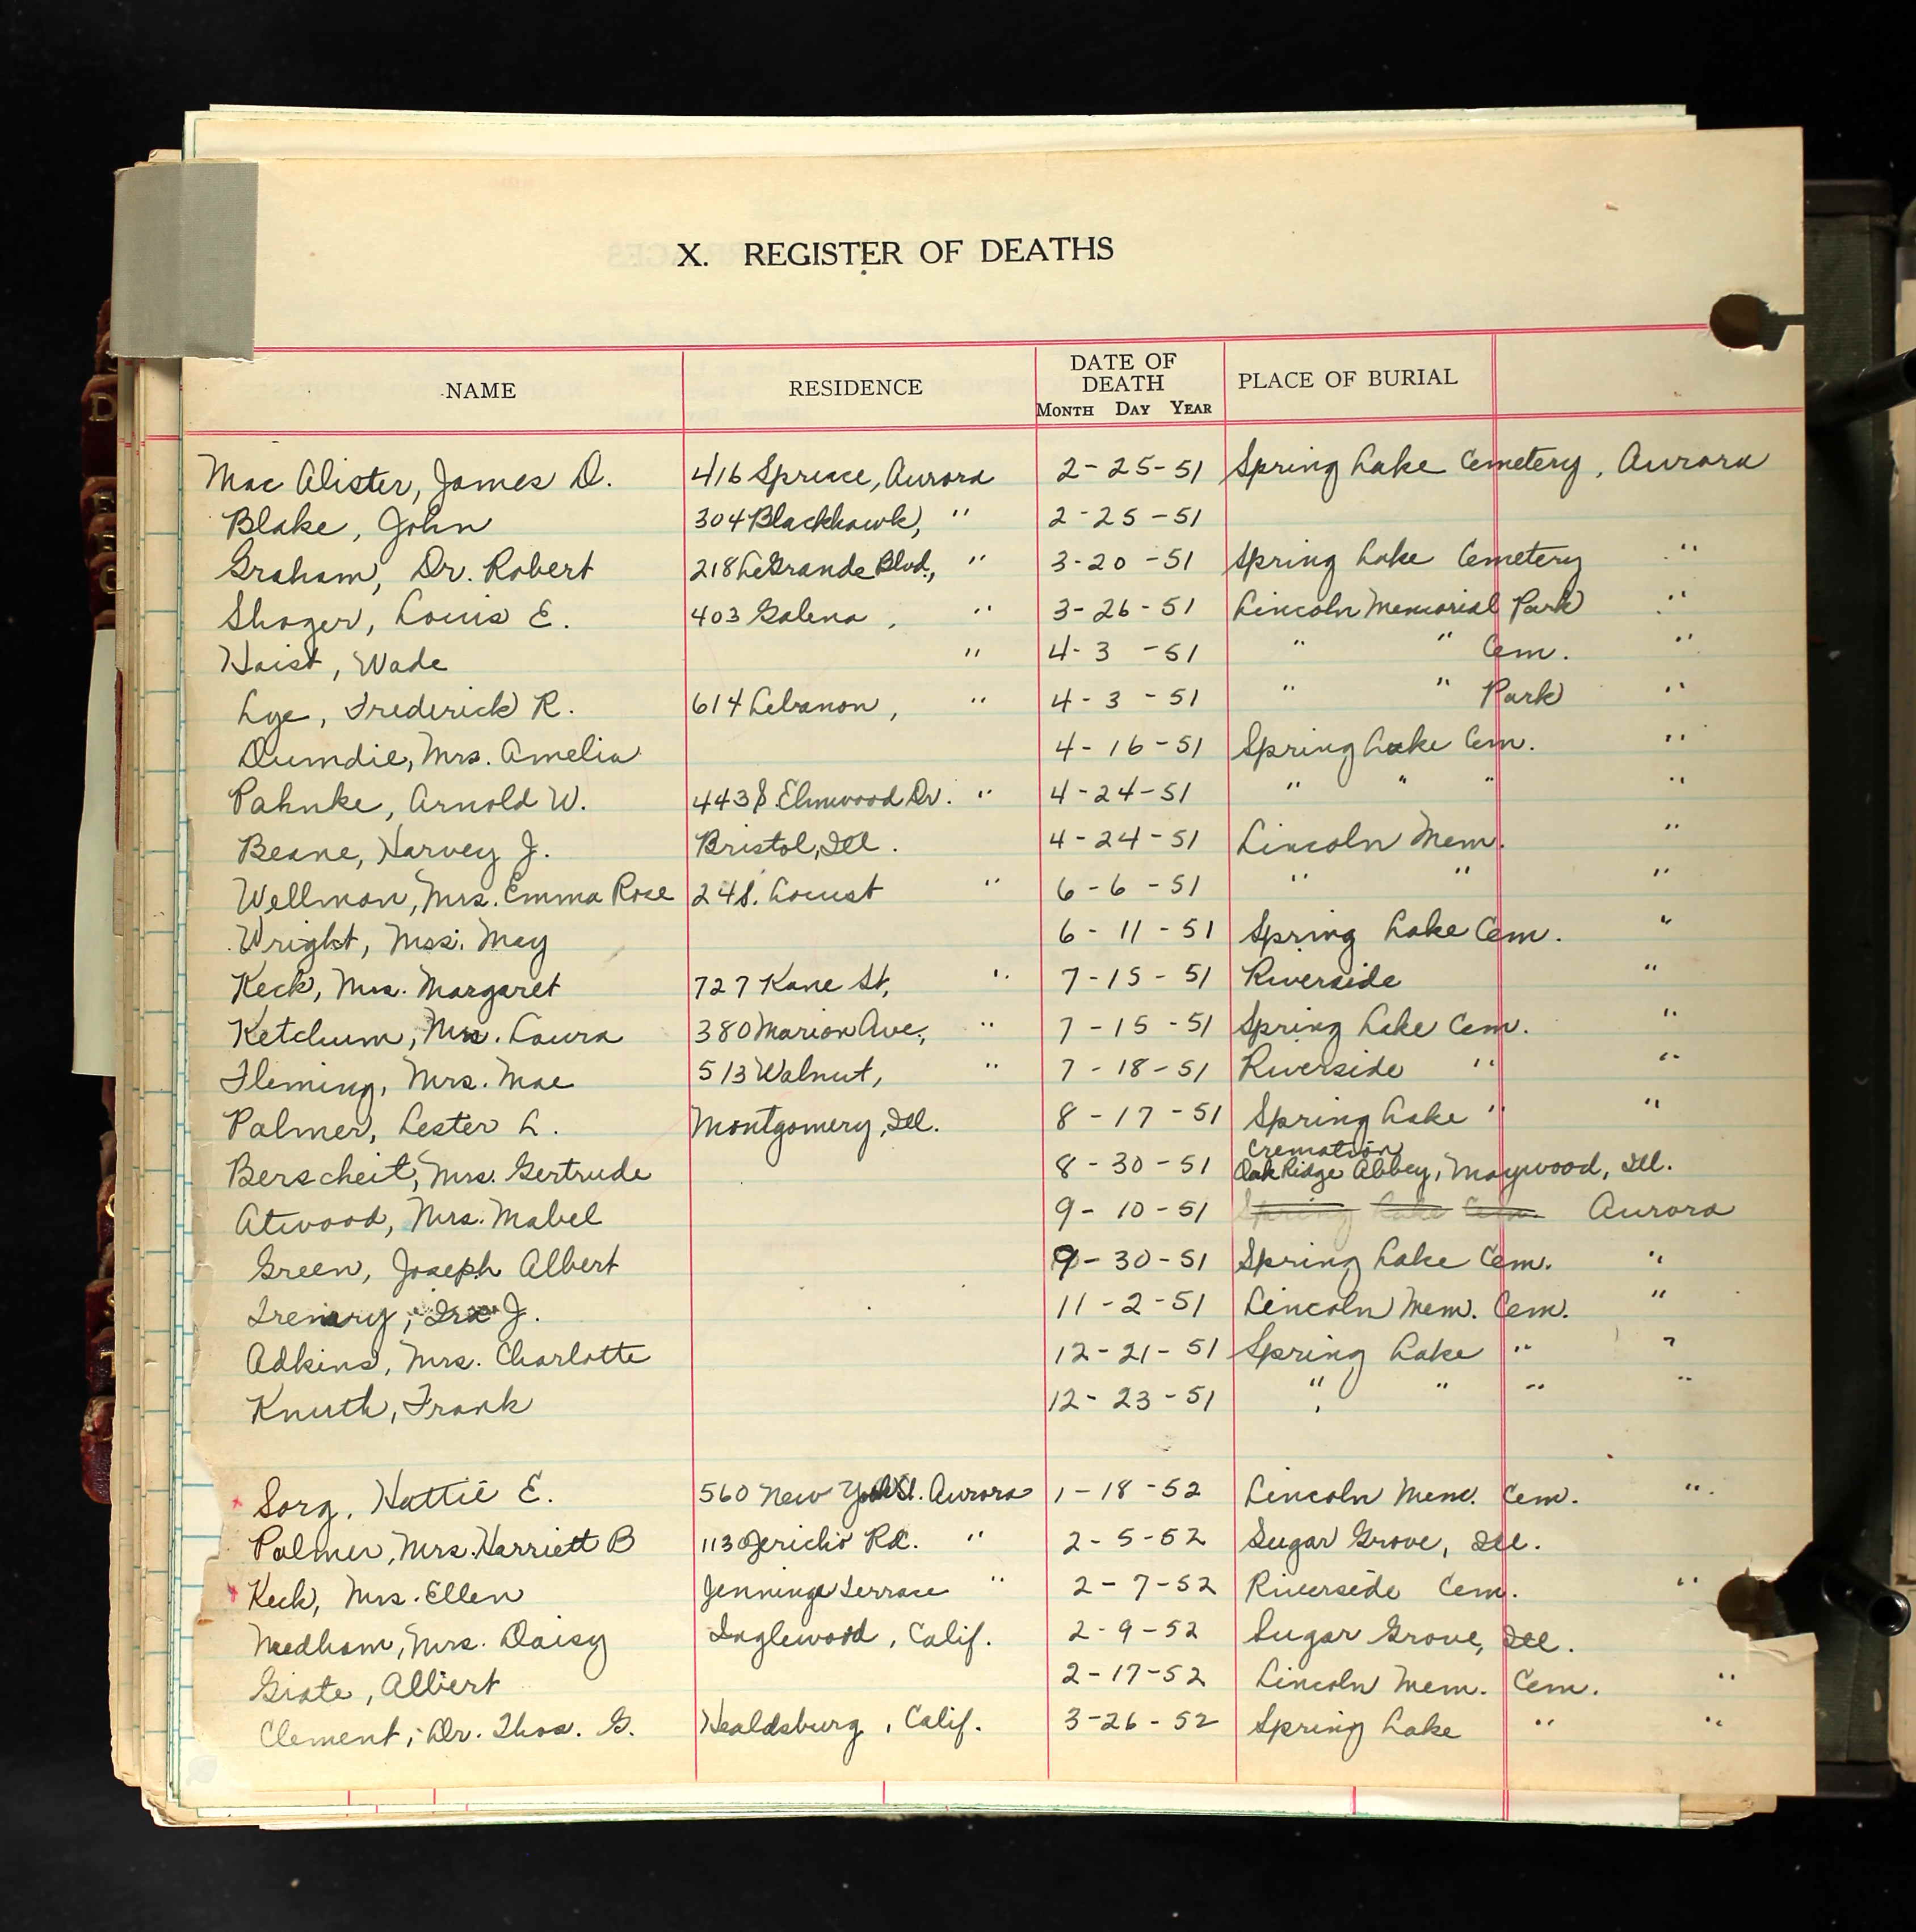 X. REGISTER OF DEATHS
NAME RESIDENCE DATE OF DEATH PLACE OF BURIAL
MONTH DAY YEAR
Mac Alister, James D. 416 Spruce, Aurora 2-25-51 Spring Lake Cemetery, Aurora
Blake, John 304 Blackhawk, " 2-25-51
Graham, Dr. Robert 218 LeGrande Blvd., " 3-20-51 Spring Lake Cemetery "
Shager, Louis E. 403 Galena, " 3-26-51 Lincoln Memorial Park "
Haist, Wade " 4-3-51 " " Cem. "
Lye, Frederick R. 614 Lebanon, " 4-3-51 " " Park "
Dumdie, Mrs. Amelia 4-16-51 Spring Lake Cem. "
Pahnke, Arnold W. 443 S. Elmwood Dr. " 4-24-51 " " " "
Beane, Harvey J. Bristol, Ill. 4-24-51 Lincoln Mem. "
Wellman, Mrs. Emma Rose 24 S. Locust " 6-6-51 " " "
Wright, Miss. May 6-11-51 Spring Lake Cem. "
Keck, Mrs. Margaret 727 Kane St, " 7-15-51 Riverside "
Ketchum, Mrs. Laura 380 Marion Ave., " 7-15-51 Spring Lake Cem. "
Fleming, Mrs. Mae 513 Walnut, " 7-18-51 Riverside " "
Palmer, Lester L. Montgomery, Ill. 8-17-51 Spring Lake " "
Berscheit, Mrs. Gertrude 8-30-51 Cremation
Oak Ridge Abbey, Maywood, Ill.
Atwood, Mrs. Mabel 9-10-51 Spring Lake Cem. Aurora
Green, Joseph Albert 9-30-51 Spring Lake Cem. "
Irenary, Ira J. 11-2-51 Lincoln Mem. Cem. "
Adkins, Mrs. Charlotte 12-21-51 Spring Lake " "
Knuth, Frank 12-23-51 " " " "
Sorg, Hattie E. 560 New York St. Aurora 1-18-52 Lincoln Mem. Cem. "
Palmer, Mrs. Harriett B 113 Jericho Rd. " 2-5-52 Sugar Grove, Ill.
Keck, Mrs. Ellen Jennings Terrace " 2-7-52 Riverside Cem. "
Needham, Mrs. Daisy Inglewood, Calif. 2-9-52 Sugar Grove, Ill.
Albert 2-17-52 Lincoln Mem. Cem. "
Clement, Dr. Thos. G. Healdsburg, Calif. 3-26-52 Spring Lake " "